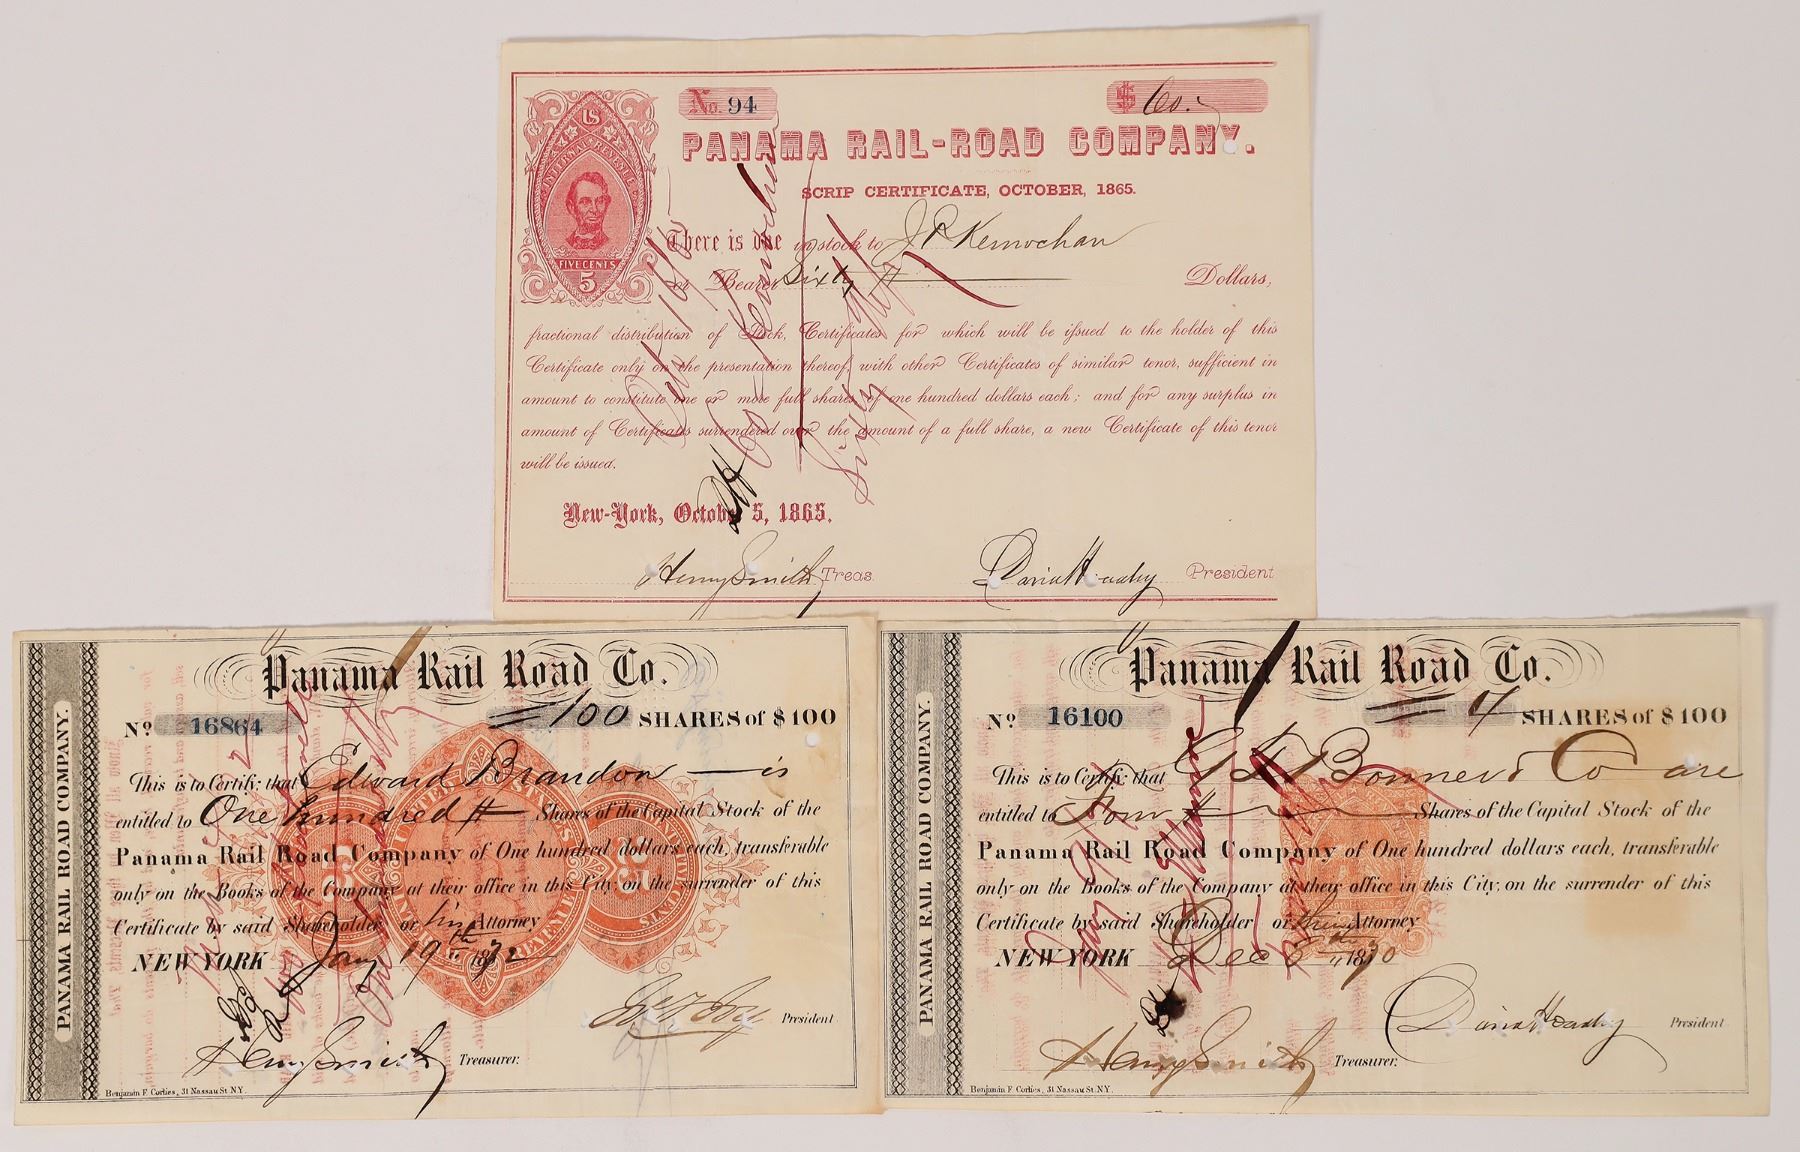 No. 94
$ 60.-
US
INTERNAL REVENUE
FIVE CENTS
5
PANAMA RAIL-ROAD COMPANY.
SCRIP CERTIFICATE, OCTOBER, 1865.
There is due in stock to J P Kernochan
or Bearer Sixty Dollars,
fractional distribution of Stock, Certificates for which will be issued to the holder of this
Certificate only on the presentation thereof, with other Certificates of similar tenor, sufficient in
amount to constitute one or more full shares of one hundred dollars each; and for any surplus in
amount of Certificates surrendered over the amount of a full share, a new Certificate of this tenor
will be issued.
New-York, October 5, 1865.
Henry Smith Treas.
David Hoadley President
PANAMA RAIL ROAD COMPANY.
Panama Rail Road Co.
No 16864
100 SHARES of $100
This is to Certify: that Edward Brandon is
entitled to One hundred Shares of the Capital Stock of the
Panama Rail Road Company of One hundred dollars each, transferable
only on the Books of the Company at their office in this City, on the surrender of this
Certificate by said Shareholder or his Attorney
NEW YORK Jany 19th 1872
President
Henry Smith Treasurer.
Benjamin F. Corlies, 31 Nassau St. N.Y.
PANAMA RAIL ROAD COMPANY.
Panama Rail Road Co.
No 16100
4 SHARES of $100
This is to Certify: that G F Bonner & Co are
entitled to Four Shares of the Capital Stock of the
Panama Rail Road Company of One hundred dollars each, transferable
only on the Books of the Company at their office in this City, on the surrender of this
Certificate by said Shareholder or their Attorney
NEW YORK Dec 5th 1870
David Hoadley President
Henry Smith Treasurer.
Benjamin F. Corlies, 31 Nassau St. N.Y.